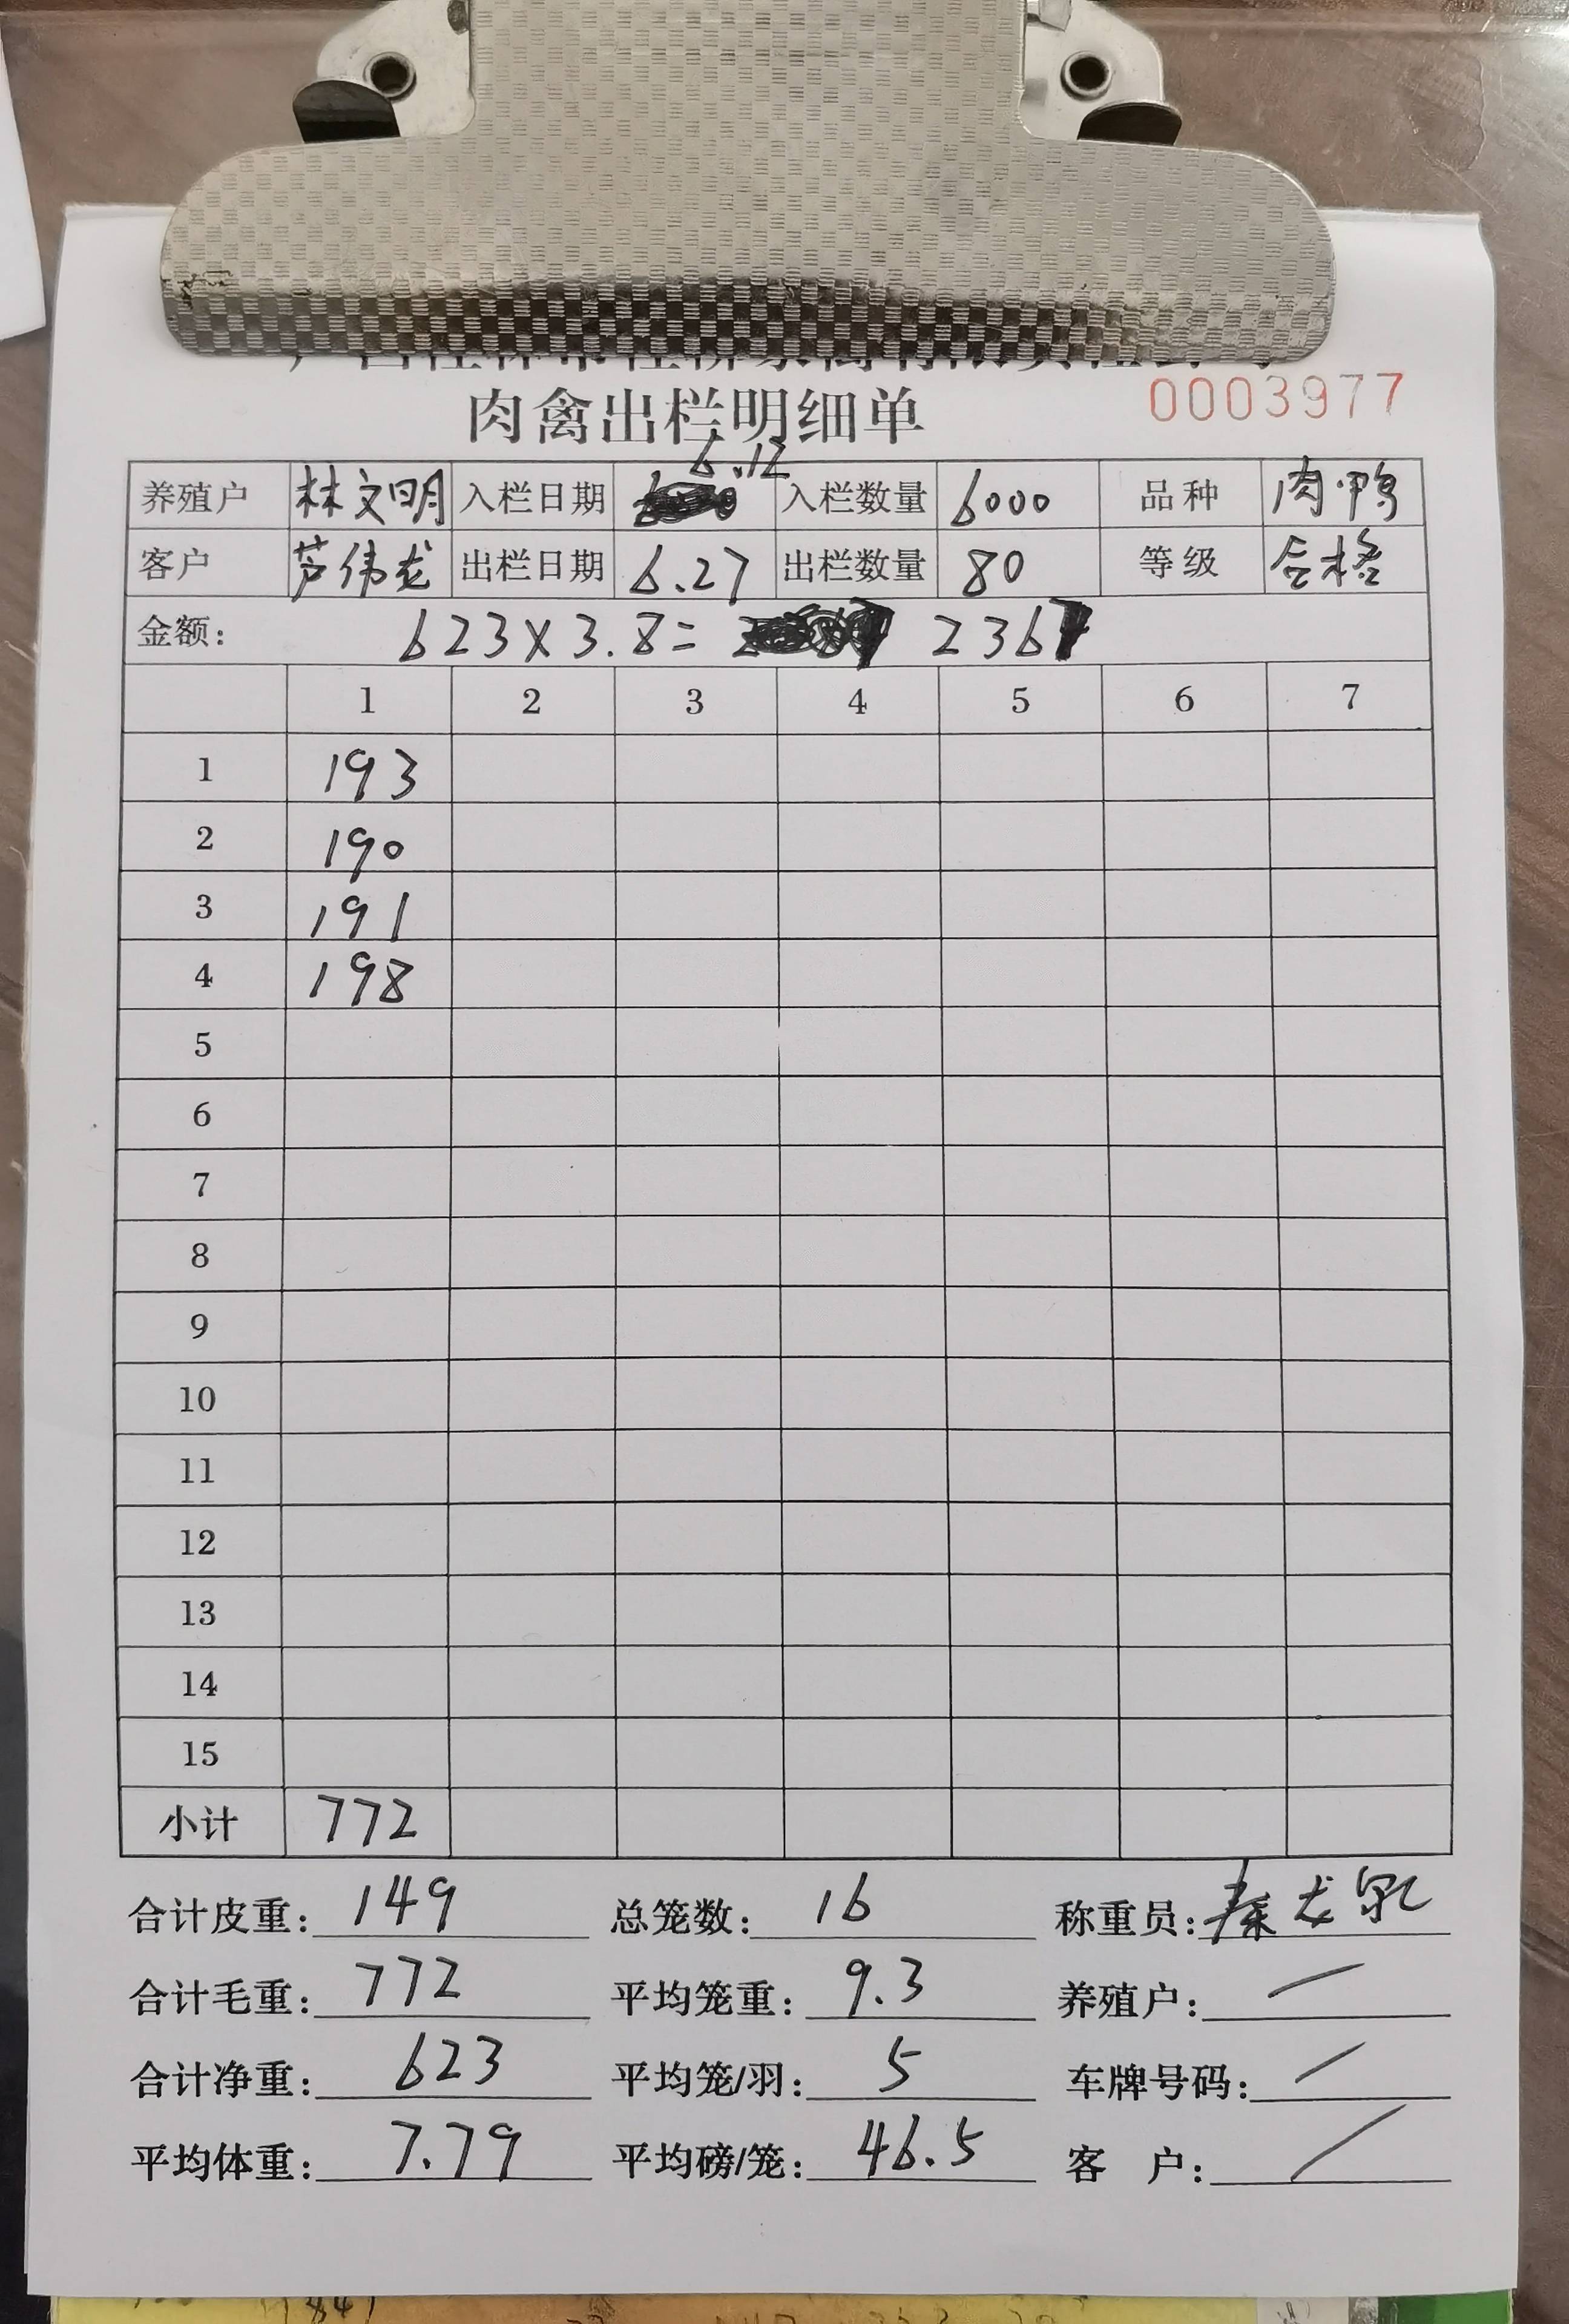 肉禽出栏明细单 0003977
6.12
养殖户 林文明 入栏日期 入栏数量 6000 品种 肉鸭
客户 芦伟龙 出栏日期 6.27 出栏数量 80 等级 合格
金额: 623×3.8= 2367
1 2 3 4 5 6 7
1 193
2 190
3 191
4 198
5
6
7
8
9
10
11
12
13
14
15
小计 772
合计皮重: 149 总笼数: 16 称重员: 秦龙
合计毛重: 772 平均笼重: 9.3 养殖户:
合计净重: 623 平均笼/羽: 5 车牌号码:
平均体重: 7.79 平均磅/笼: 46.5 客 户: